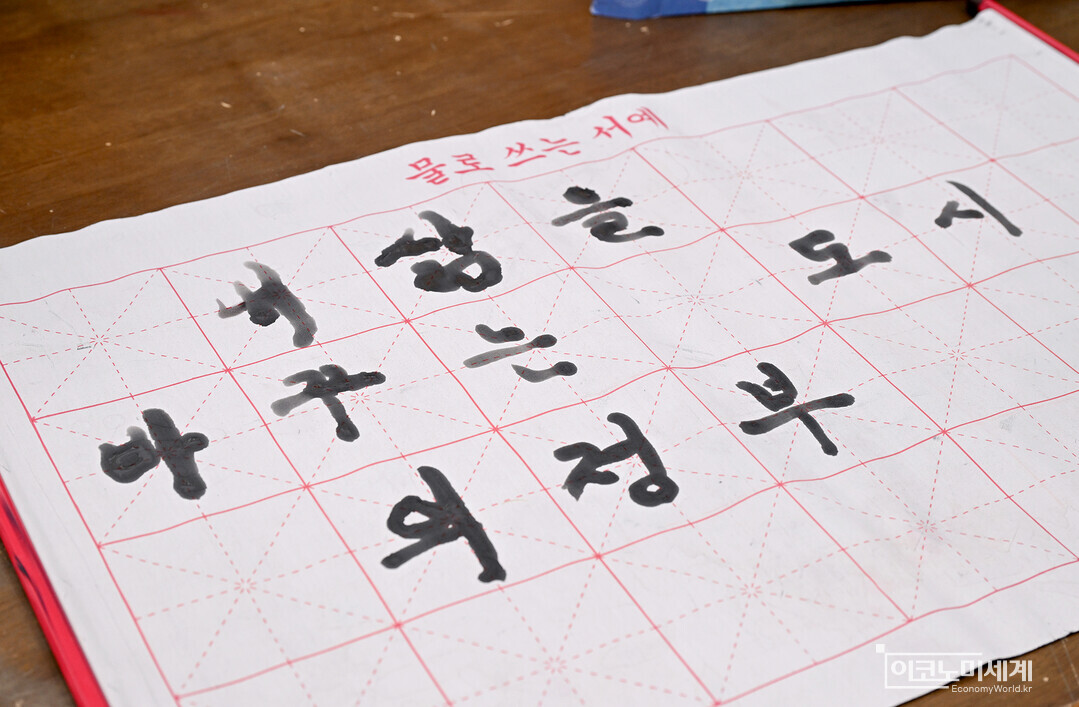 물로 쓰는 서예
내 삶을
바꾸는 도시
의정부
이코노미세계
EconomyWorld.kr